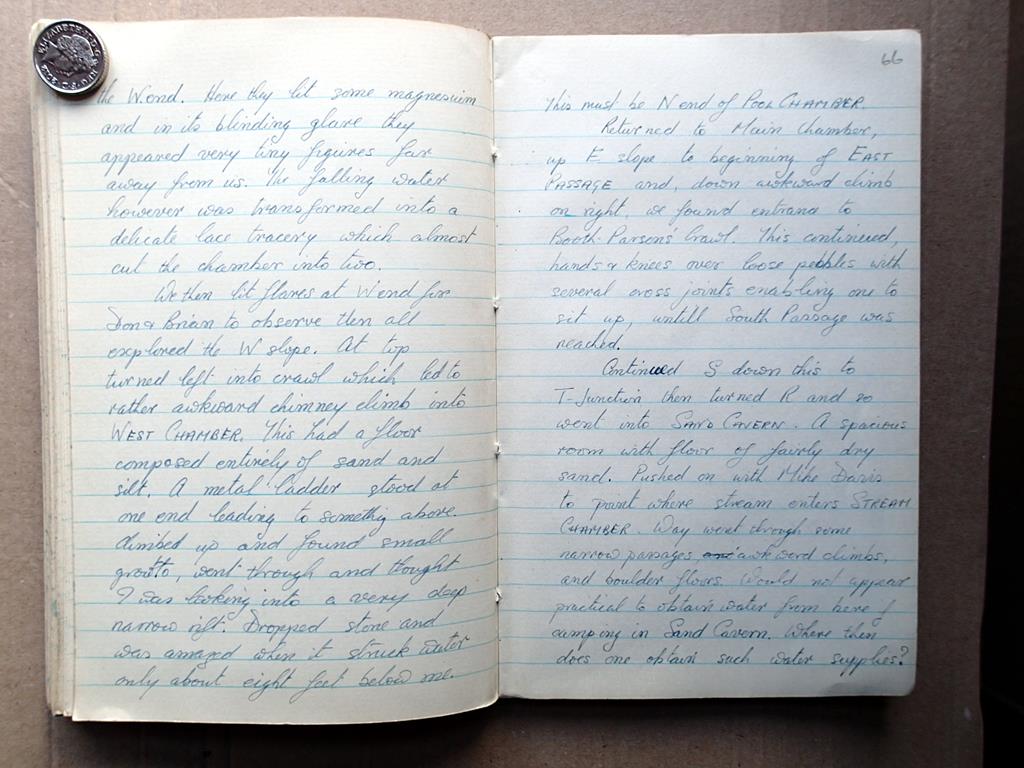 the W end. Here they lit some magnesium
and in its blinding glare they
appeared very tiny figures far
away from us. The falling water
however was transformed into a
delicate lace tracery which almost
cut the chamber into two.
We then lit flares at W end for
Don & Brian to observe then all
explored the W slope. At top
turned left into crawl which led to
rather awkward chimney climb into
WEST CHAMBER. This had a floor
composed entirely of sand and
silt. A metal ladder stood at
one end leading to somethig above.
Climbed up and found small
grotto, went through and thought
I was looking into a very deep
narrow rift. Dropped stone and
was amazed when it struck water
only about eight feet below me.
66
This must be N end of POOL CHAMBER.
Returned to Main Chamber,
up E slope to beginning of EAST
PASSAGE and, down awkward climb
on right, we found entrance to
Booth-Parson's Crawl. This continued,
hands & knees over loose pebbles with
several cross joints enabling one to
sit up, untill South Passage was
reached.
Continued S down this to
T-Junction then turned R and so
went into SAND CAVERN. A spacious
room with floor of fairly dry
sand. Pushed on with Mike Davis
to point where stream enters STREAM
CHAMBER. Way went through some
narrow passages, awkward climbs,
and boulder floors. Would not appear
practical to obtain water from here if
camping in Sand Cavern. Where then
does one obtain such water supplies?